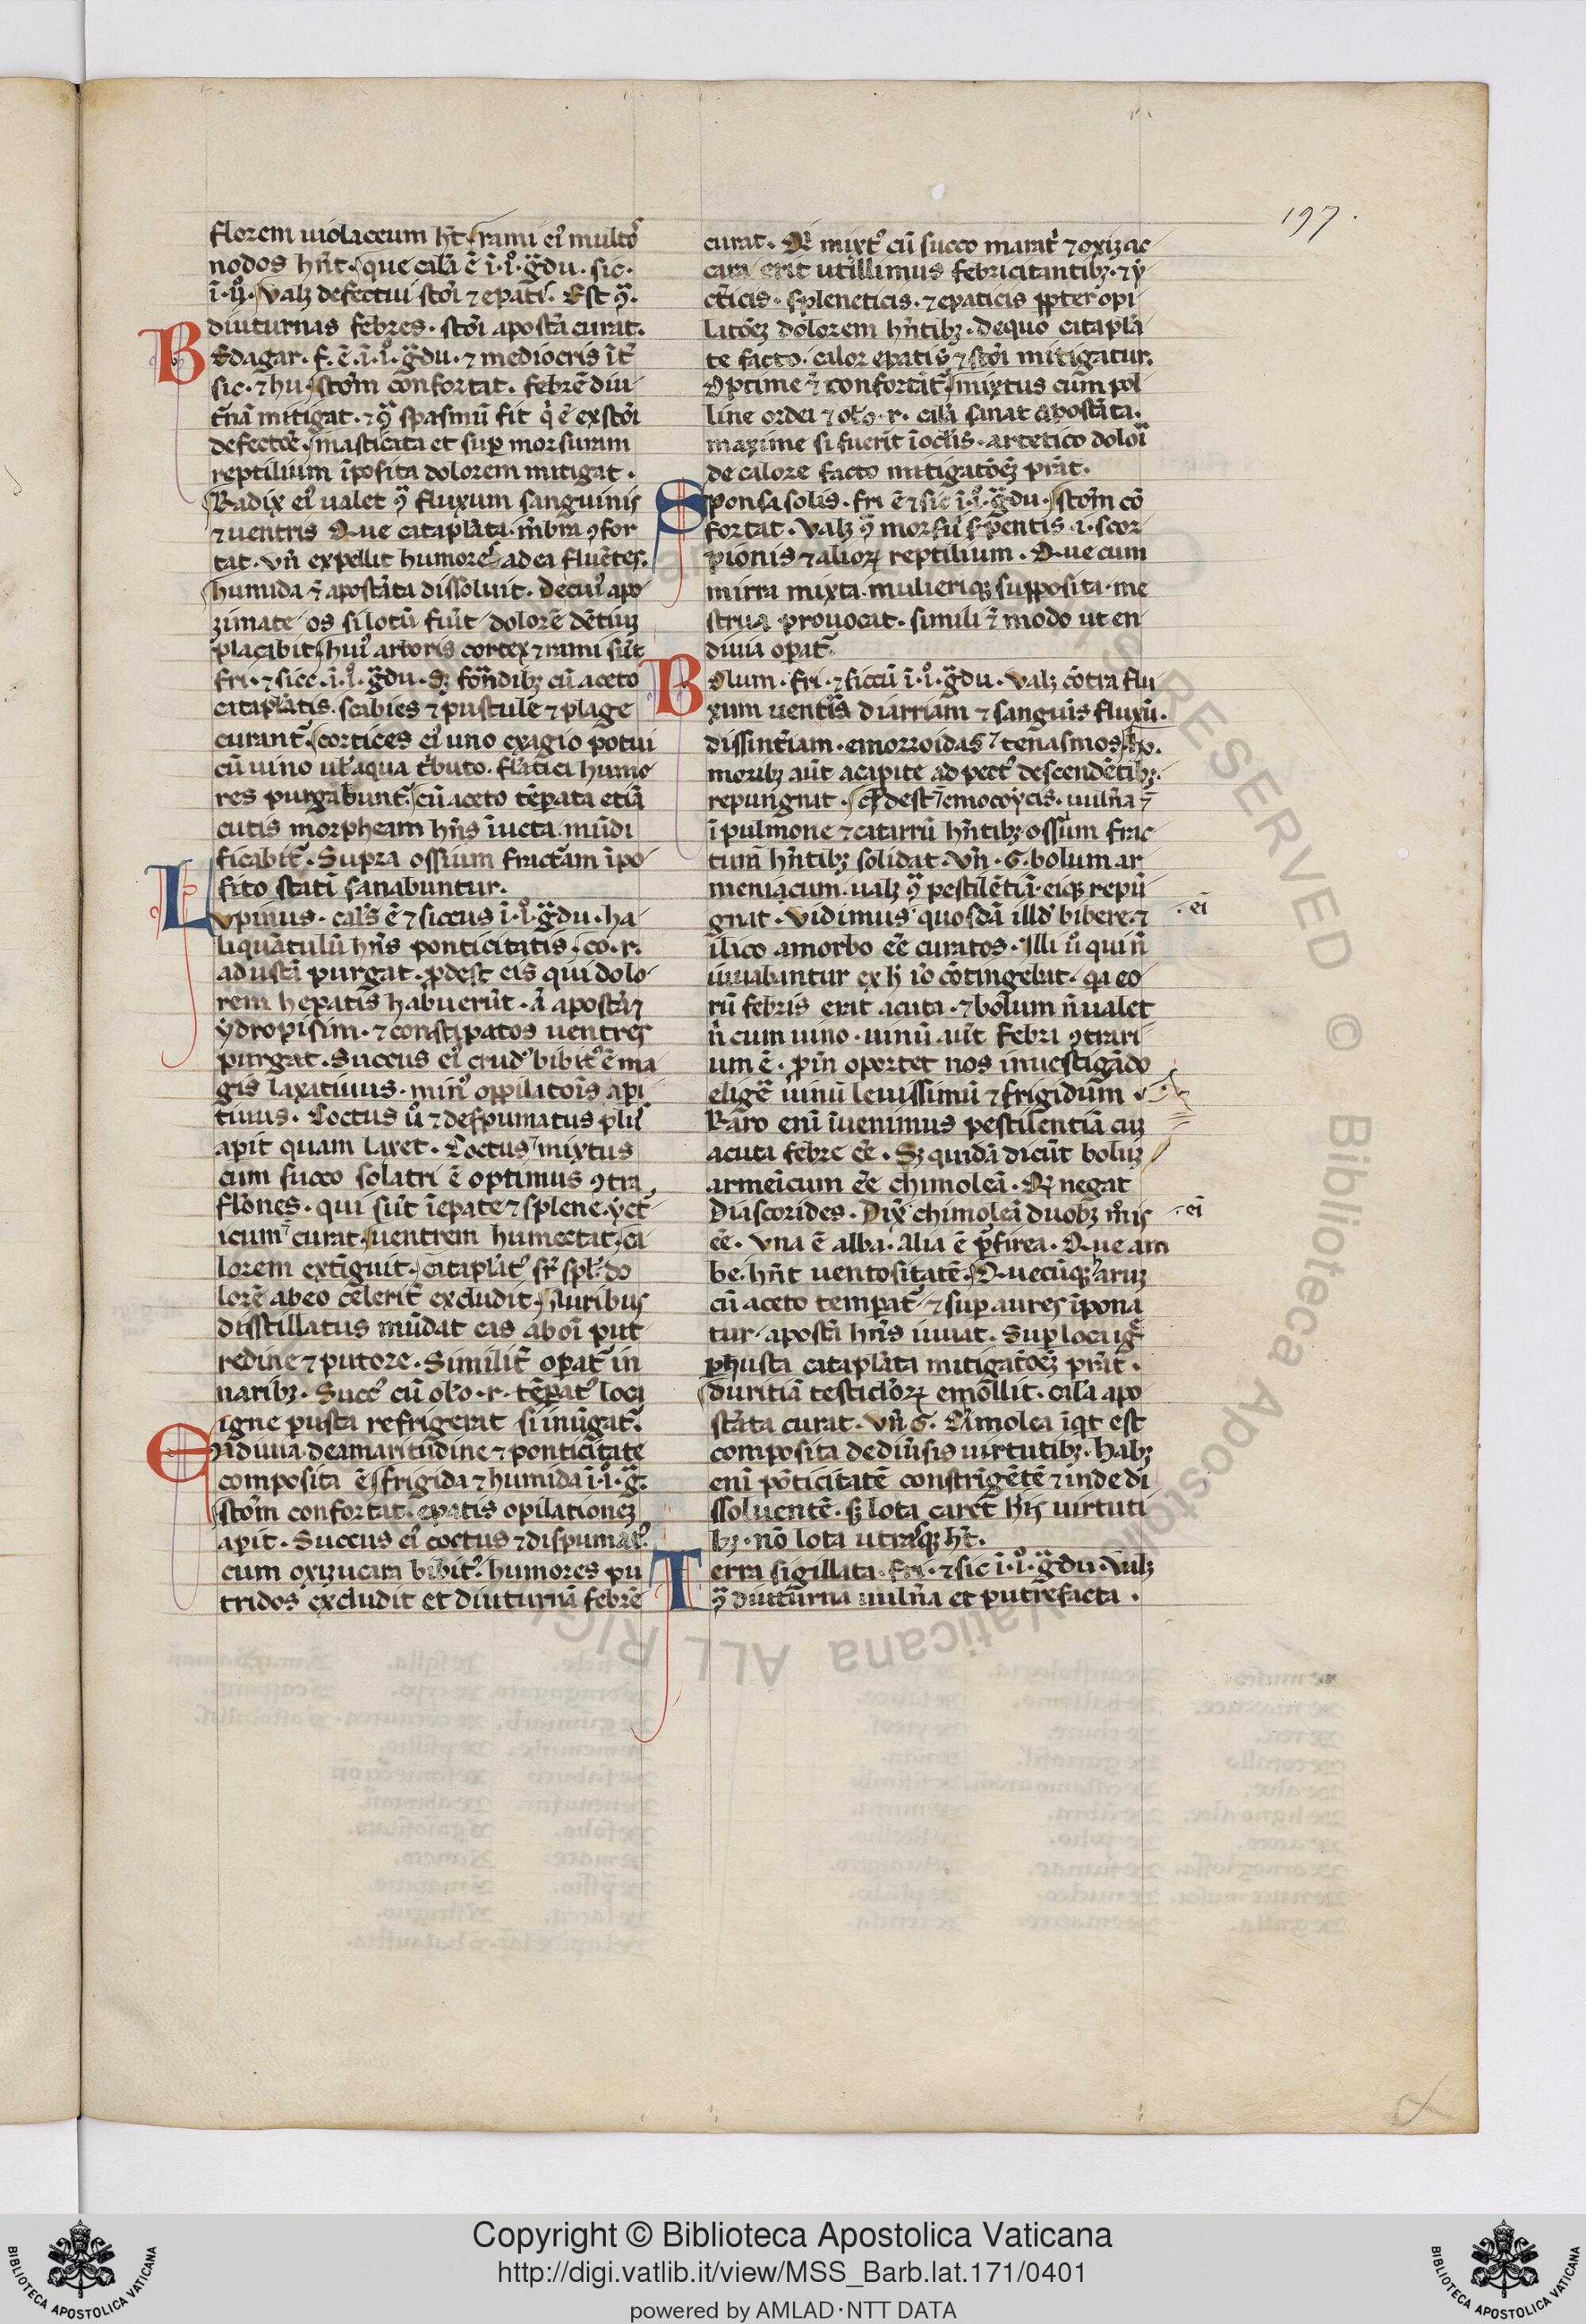 197.
florem uiolaceum hñt. rami eiꝰ multos
nodos hñt. que cal̃a ē ī .i͛. g̃du. sic.
ī .ij͛. Valꝫ defectui stõi ⁊ epati. Est ꝯ̃.
diuturnas febres. stõi apostã curat.
Bedagar. f. ē ī .i͛. g̃du. ⁊ mediocris ĩt̃
sic. ⁊ hu. stõm confortat. febrē diu
t̃nā mitigat. ⁊ ꝯ̃ spasmū fit q̇ ē ex stõi
defectōe. masticata et suꝑ morsuram
reptilium īposita dolorem mitigat.
Radix eiꝰ ualet ꝯ̃ fluxum sanguinis
⁊ uentris Que cataplãta m̃bra ꝯfor
tat. vñ expellit humores ad ea fluētes.
humida ⁊̃ apostãta dissoluit. De cuiꝰ apo
zimate os si lotū fuĩt dolorē dētiuꝫ
placabit. huiꝰ arboris cortex ⁊ rami sūt
fri. ⁊ sicc. ī .i͛. g̃du.
cataplãtis. scabies ⁊ pustule ⁊ plage
curant᷑. cortices eiꝰ uno exagio potui
cū uino ul̃ aqua t̃buto. fl̃atici humo
res purgabunt᷑. cū aceto tēpata etiā
cutis morpheam hñs iuncta mūdi
ficabit᷑. Supra ossium fractãm īpo
sito statī sanabuntur.
Lupinus. cal̃s ē ⁊ siccus ī .i͛. g̃du. ha
liquātulū hñs ponticitatis. co. r.
adustā purgat. ꝓdest eis qui dolo
rem hepatis habuerūt. ⁊̃ apostã ⁊
ydropisim. ⁊ constipatos uentres
purgat. Succus eiꝰ crudꝰ bibitꝰ ē ma
gis laxatiuus. minꝰ oppilatõis api
tiuus. Coctus u͛ ⁊ despumatus pl̃s
apit quam laxet. Coctus ⁊̃ mixtus
cum succo solatri ē optimus ꝯtra
fl̃ones. qui sūt ī epate ⁊ splene. yct̃
icum ⁊̃ curat. uentrem humectat. ca
lorem extīguit. cataplãtꝰ sr̃ spl̃. do
lorē ab eo celerit̃ excludit. Auribus
distillatus mūdat eas ab oĩ put
redine ⁊ putore. Similit̃ opat᷑ in
naribꝫ. Succꝰ cū ol̃o .r. tēpatꝰ loca
igne pusta refrigerat si inūgat᷑.
Endiuia de amaritudine ⁊ ponticitate
composita ē. frigida ⁊ humida ī .i͛. g̃.
stõm confortat. epatis opilationeꝫ
apit. Succus eiꝰ coctus ⁊ dispumatꝰ.
cum oxizucara bibitꝰ. humores pu
tridos excludit et diuturnā febrē
curat. Qꝛ mixtꝰ cū succo maratꝛ ⁊ oxizac
cara erit utillimus febricitantibꝫ. ⁊ y
ct̃icis. spleneticis. ⁊ epaticis ꝓpter opi
latõeꝫ dolorem hñtibꝫ. de quo catapla
te facto. calor epatis ⁊ stõi mitigatur.
Optime ⁊̃ confortat᷑. mixtus cum pol
line ordei ⁊ ol̃o .r. cal̃a sanat apostãta.
maxime si fuerit ī oclis. artetico dolori
de calore facto mitigatõeꝫ prãt.
Sponsa solis. fri ē ⁊ sic ī .i͛. g̃du. stõm cō
fortat. Valꝫ ꝯ̃ morsū spentis .i. scor
pionis ⁊ alioꝝ reptilium. Que cum
mirra mixta. mulieriqꝫ supposita. me
strua prouocat. simili ⁊̃ modo ut en
diuia opat᷑.
Bolum. fri. ⁊ siccū ī .i͛. g̃du. Valꝫ cōtra flu
xum uentris diarriam ⁊ sanguis fluxū.
dissint̃iam. emorroidas ⁊ tenasmos. ho.
moribꝫ aūt a capite ad pectꝰ descendētibꝫ.
repungnat. ꝓdest ⁊̃ emocoycis. uulña ⁊̃
ī pulmone ⁊ catarrū hñtibꝫ. ossium frac
turā hñtibꝫ solidat. Vñ .G. bolum ar
meniacum. ualꝫ ꝯ̃ pestilētiā. eiqꝫ repū
gnat. Vidimus quosdā illd̃ bibere. ⁊ .ei
īlico a morbo eē curatos. Illi u͛ qui ñ
iuuabantur ex h̃ iõ cōtingebat. qꝛ eo
rū febris erat acuta. ⁊ bolum ñ ualet
ñ cum uino. uinū aūt febri ꝯtrari
um ē. ꝓin oportet nos inuestigādo
eligē uinū leuissimū ⁊ frigidum.
Raro enī iuenimus pestilentiā cuꝫ
acuta febre eē. Sꝫ quidā dicūt boluꝫ
armeicum eē chimoleā. Qꝛ negat
Diascorides. Dix̃ chimoleā duobꝫ m̃is .ei
eē. Vna ē alba. Alia ē p̃firea. Que am
be hñt uentositatē. Quecūqꝫ haruꝫ
cū aceto tempat᷑ ⁊ sup aures īpona
tur. apostã hñs iuuat. Sup loca ig̃
phusta cataplãta mitigatõeꝫ prãt.
duritiā testicl̃oꝝ emollit. cal̃a apo
stãta curat. Vñ .G. Cimolea īqt̃ est
composita de diũsis uirtutibꝫ. Habꝫ
enī pōticitatē constrīgētē ⁊ inde di
ssoluentē. sꝫ lota caret hĩs uirtuti
bꝫ. nō lota utrasqꝫ ht̃.
Terra sigillata fri. ⁊ sic ī .i͛. g̃du. Valꝫ
ꝯ̃ diuturna uulña et putrefacta.
Copyright © Biblioteca Apostolica Vaticana
http://digi.vatlib.it/view/MSS_Barb.lat.171/0401
powered by AMLAD·NTT DATA
BIBLIOTECA APOSTOLICA VATICANA
BIBLIOTECA APOSTOLICA VATICANA